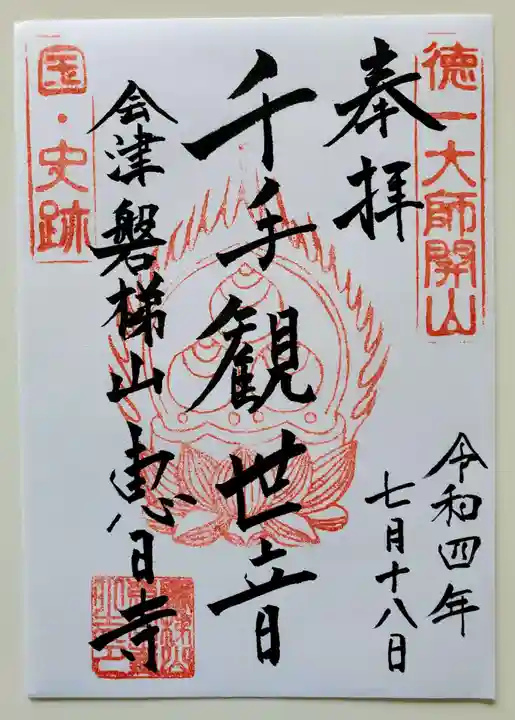 徳一大師開山
奉拝
令和四年
七月十八日
千手観世音
会津磐梯山 恵日寺
国・史跡